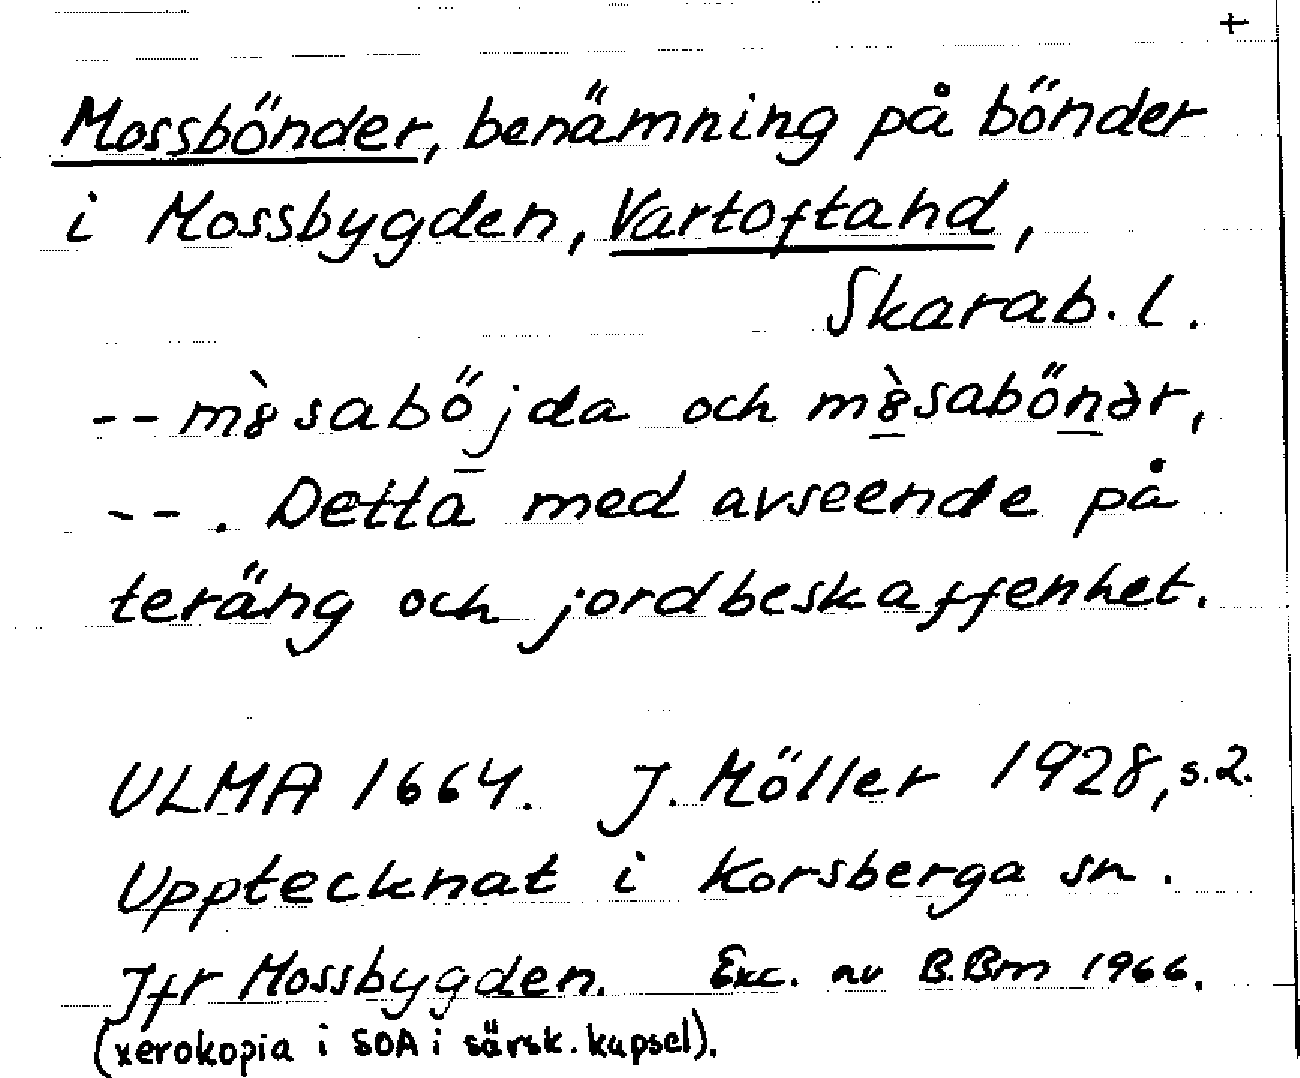 +
Mossbönder, benämning på bönder
i Mossbygden, Vartoftahd,
Skarab. l.
-- m8̀saböjda och m8̀sabönər,
-- . Detta med avseende på
teräng och jordbeskaffenhet.
ULMA 1664. J. Möller 1928, s. 2.
Upptecknat i Korsberga sn.
Jfr Mossbygden. Exc. av B.Bm 1966.
(xerokopia i SOA i särsk. kapsel).